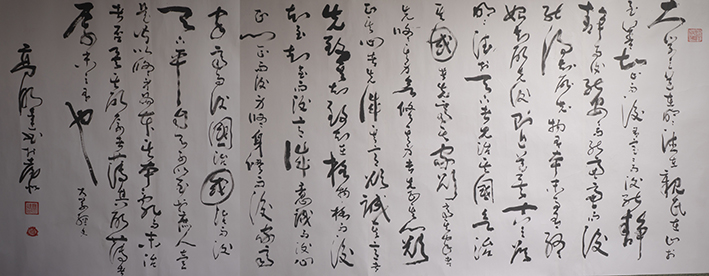 大學之道在明明德在親民在止於
至善知止而后有定定而后能靜
靜而后能安安而后能慮慮而后
能得物有本末事有終始
知所先後則近道矣古之欲
明明德於天下者先治其國欲治
其國者先齊其家欲齊其家者
先修其身欲修其身者先正其心欲
正其心者先誠其意欲誠其意者
先致其知致知在格物物格而后
知至知至而后意誠意誠而后心
正心正而后身修身修而后家齊
家齊而后國治國治而后
天下平自天子以至於庶人壹
是皆以修身為本其本亂而末治
者否矣其所厚者薄而其所薄者
厚未之有也